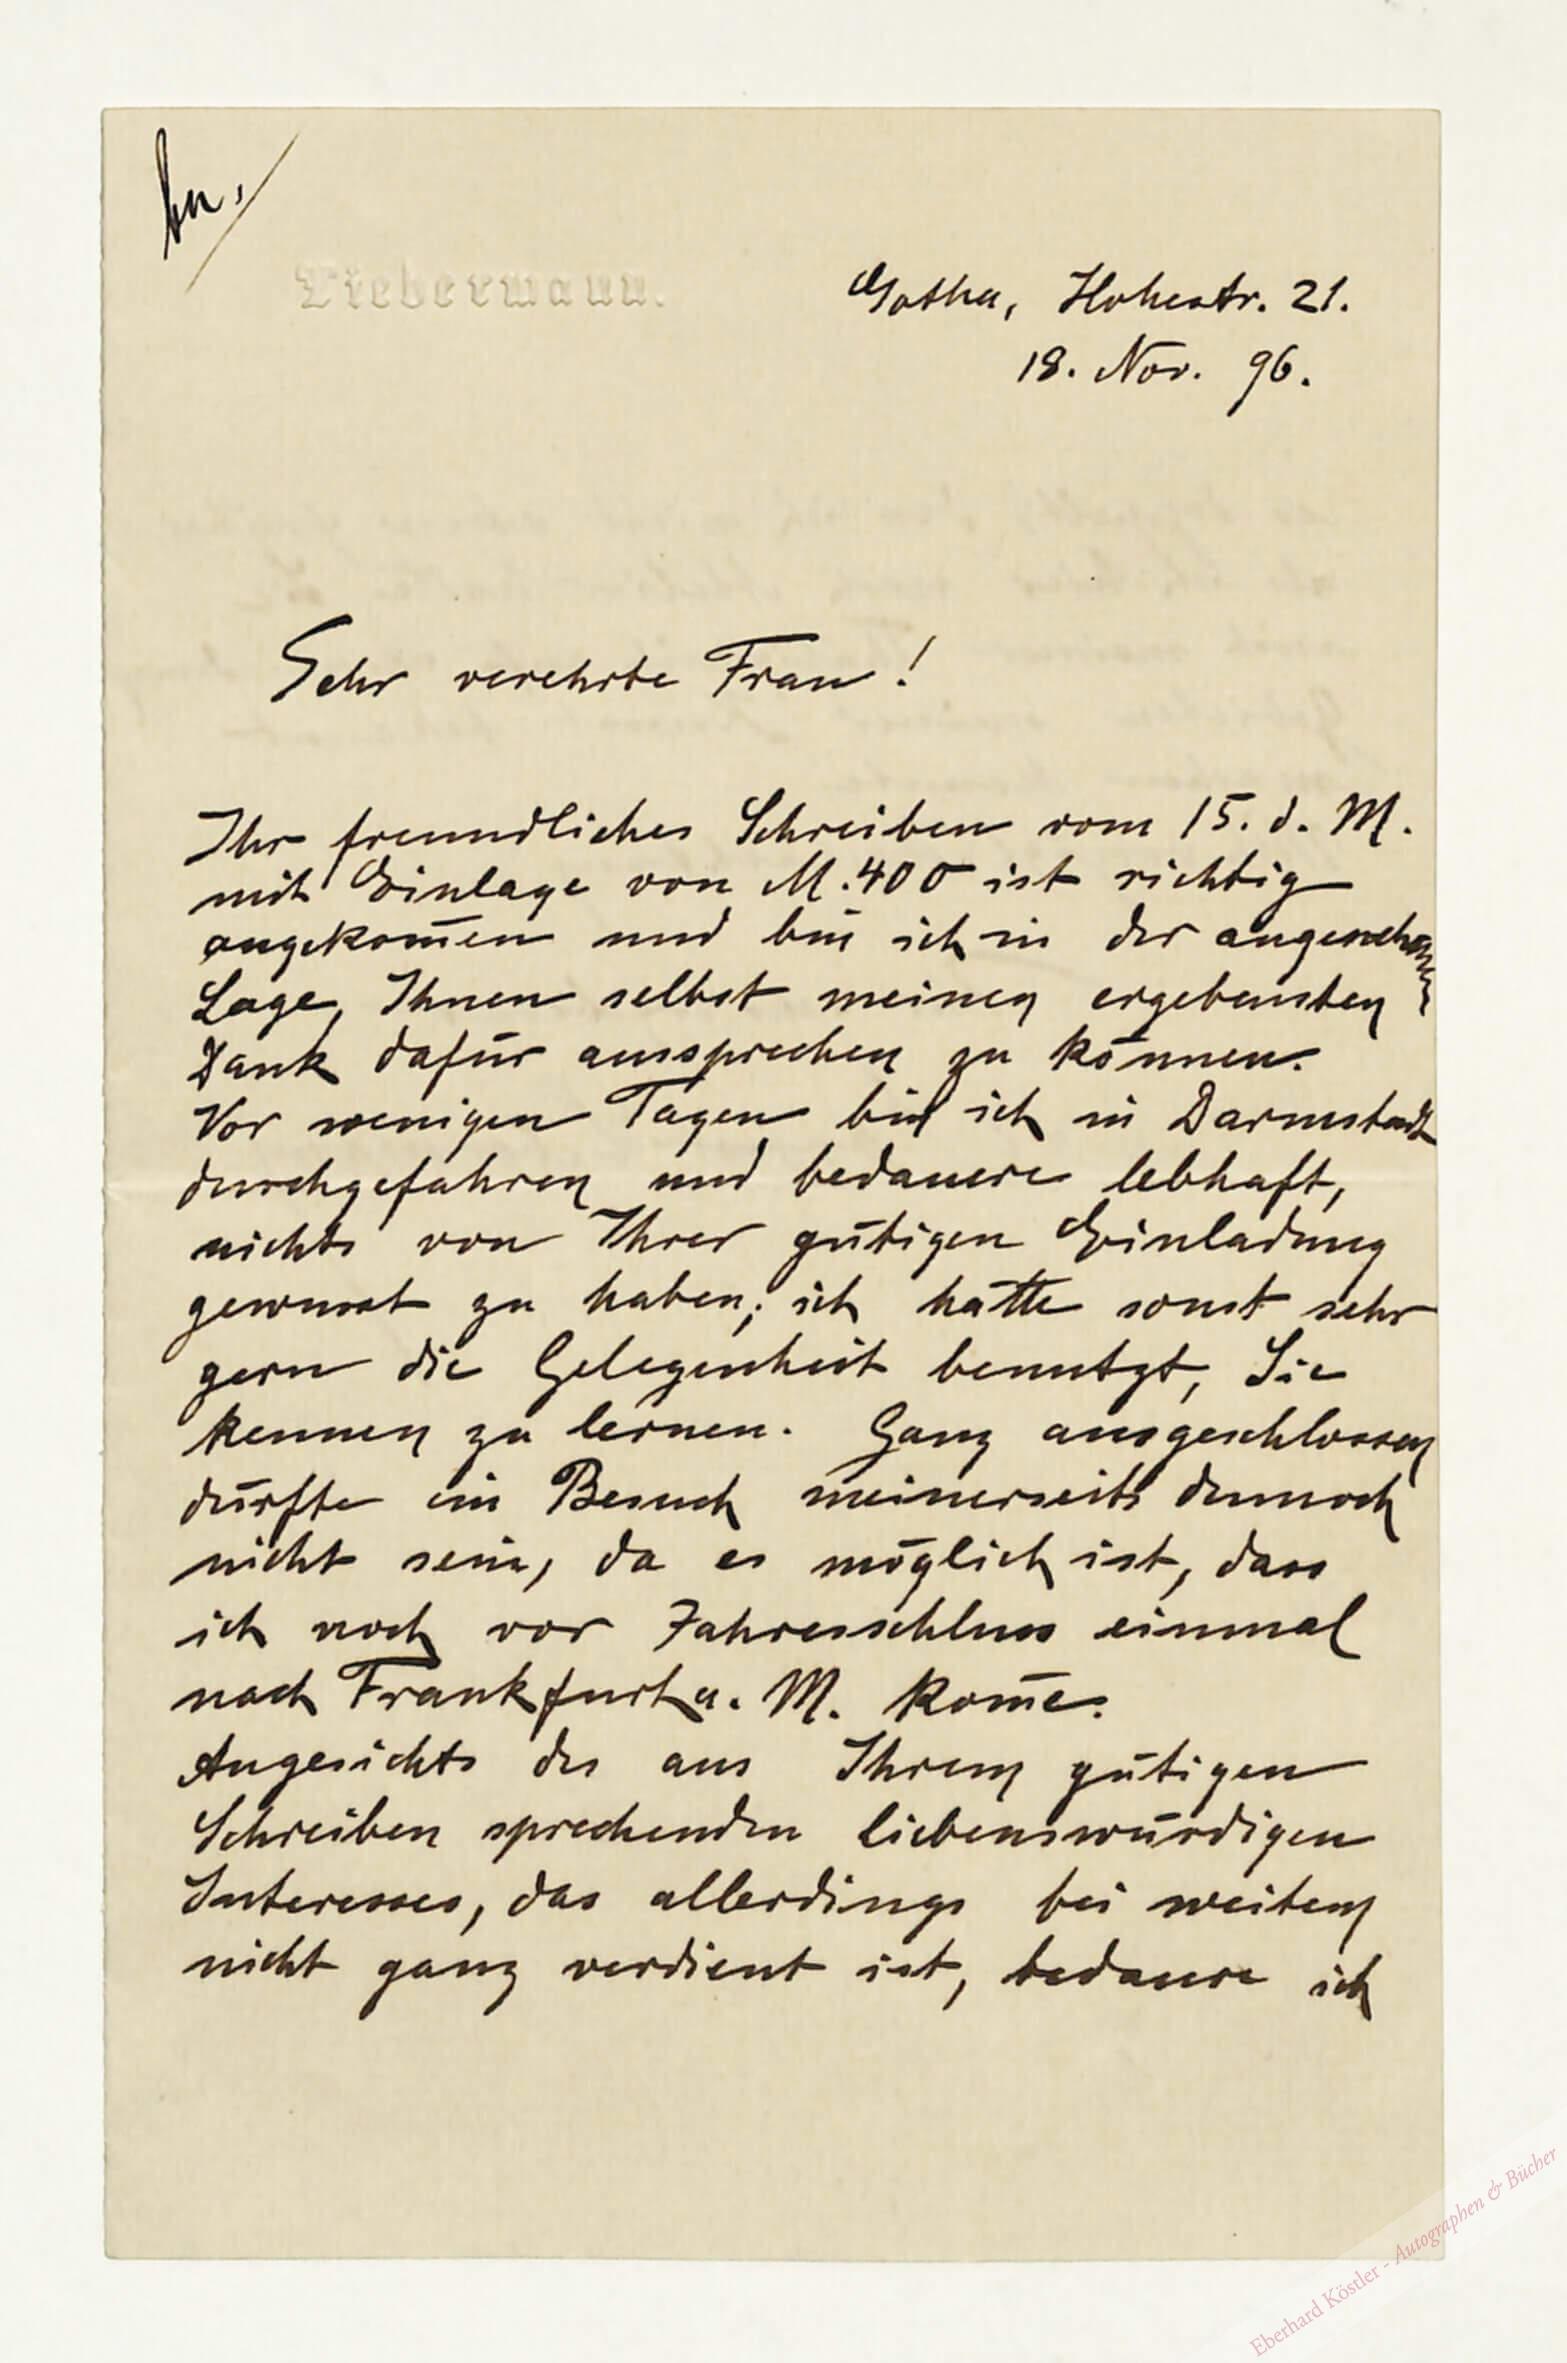 bn.
Liebermann.
Gotha, Hohestr. 21.
18. Nov. 96.
Sehr verehrte Frau!
Ihr freundliches Schreiben vom 15. d. M.
mit Einlage von M. 400 ist richtig
angekom̅en und bin ich in der angenehmen
Lage, Ihnen selbst meinen ergebensten
Dank dafür aussprechen zu können.
Vor wenigen Tagen bin ich in Darmstadt
durchgefahren und bedauere lebhaft,
nichts von Ihrer gütigen Einladung
gewusst zu haben; ich hätte sonst sehr
gern die Gelegenheit benutzt, Sie
kennen zu lernen. Ganz ausgeschlossen
dürfte ein Besuch meinerseits dennoch
nicht sein, da es möglich ist, dass
ich noch vor Jahresschluss einmal
nach Frankfurt a. M. kom̅e.
Angesichts des aus Ihrem gütigen
Schreiben sprechenden liebenswürdigen
Interesses, das allerdings bei weitem
nicht ganz verdient ist, bedaure ich
Eberhard Köstler - Autographen & Bücher